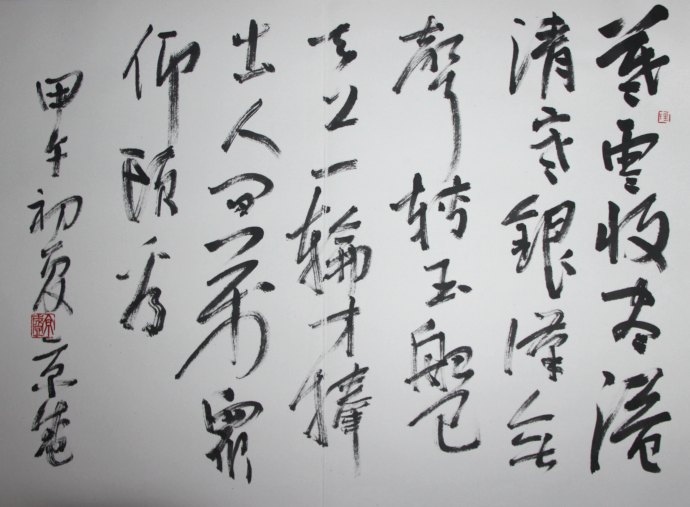 暮雲收盡溢
清寒銀漢無
聲轉玉盤
天上一輪才捧
出人間萬衆
仰頭看
甲午初夏京